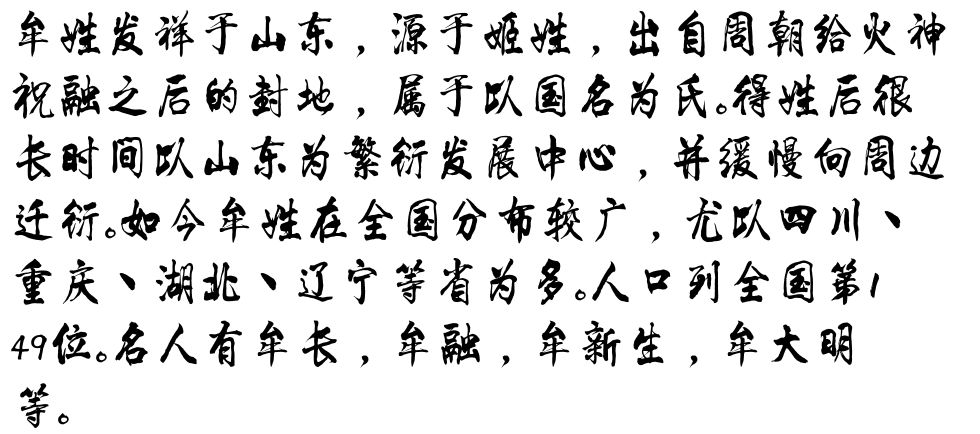 牟姓发祥于山东，源于姬姓，出自周朝给火神
祝融之后的封地，属于以国名为氏。得姓后很
长时间以山东为繁衍发展中心，并缓慢向周边
迁衍。如今牟姓在全国分布较广，尤以四川、
重庆、湖北、辽宁等省为多。人口列全国第1
49位。名人有牟长，牟融，牟新生，牟大明
等。